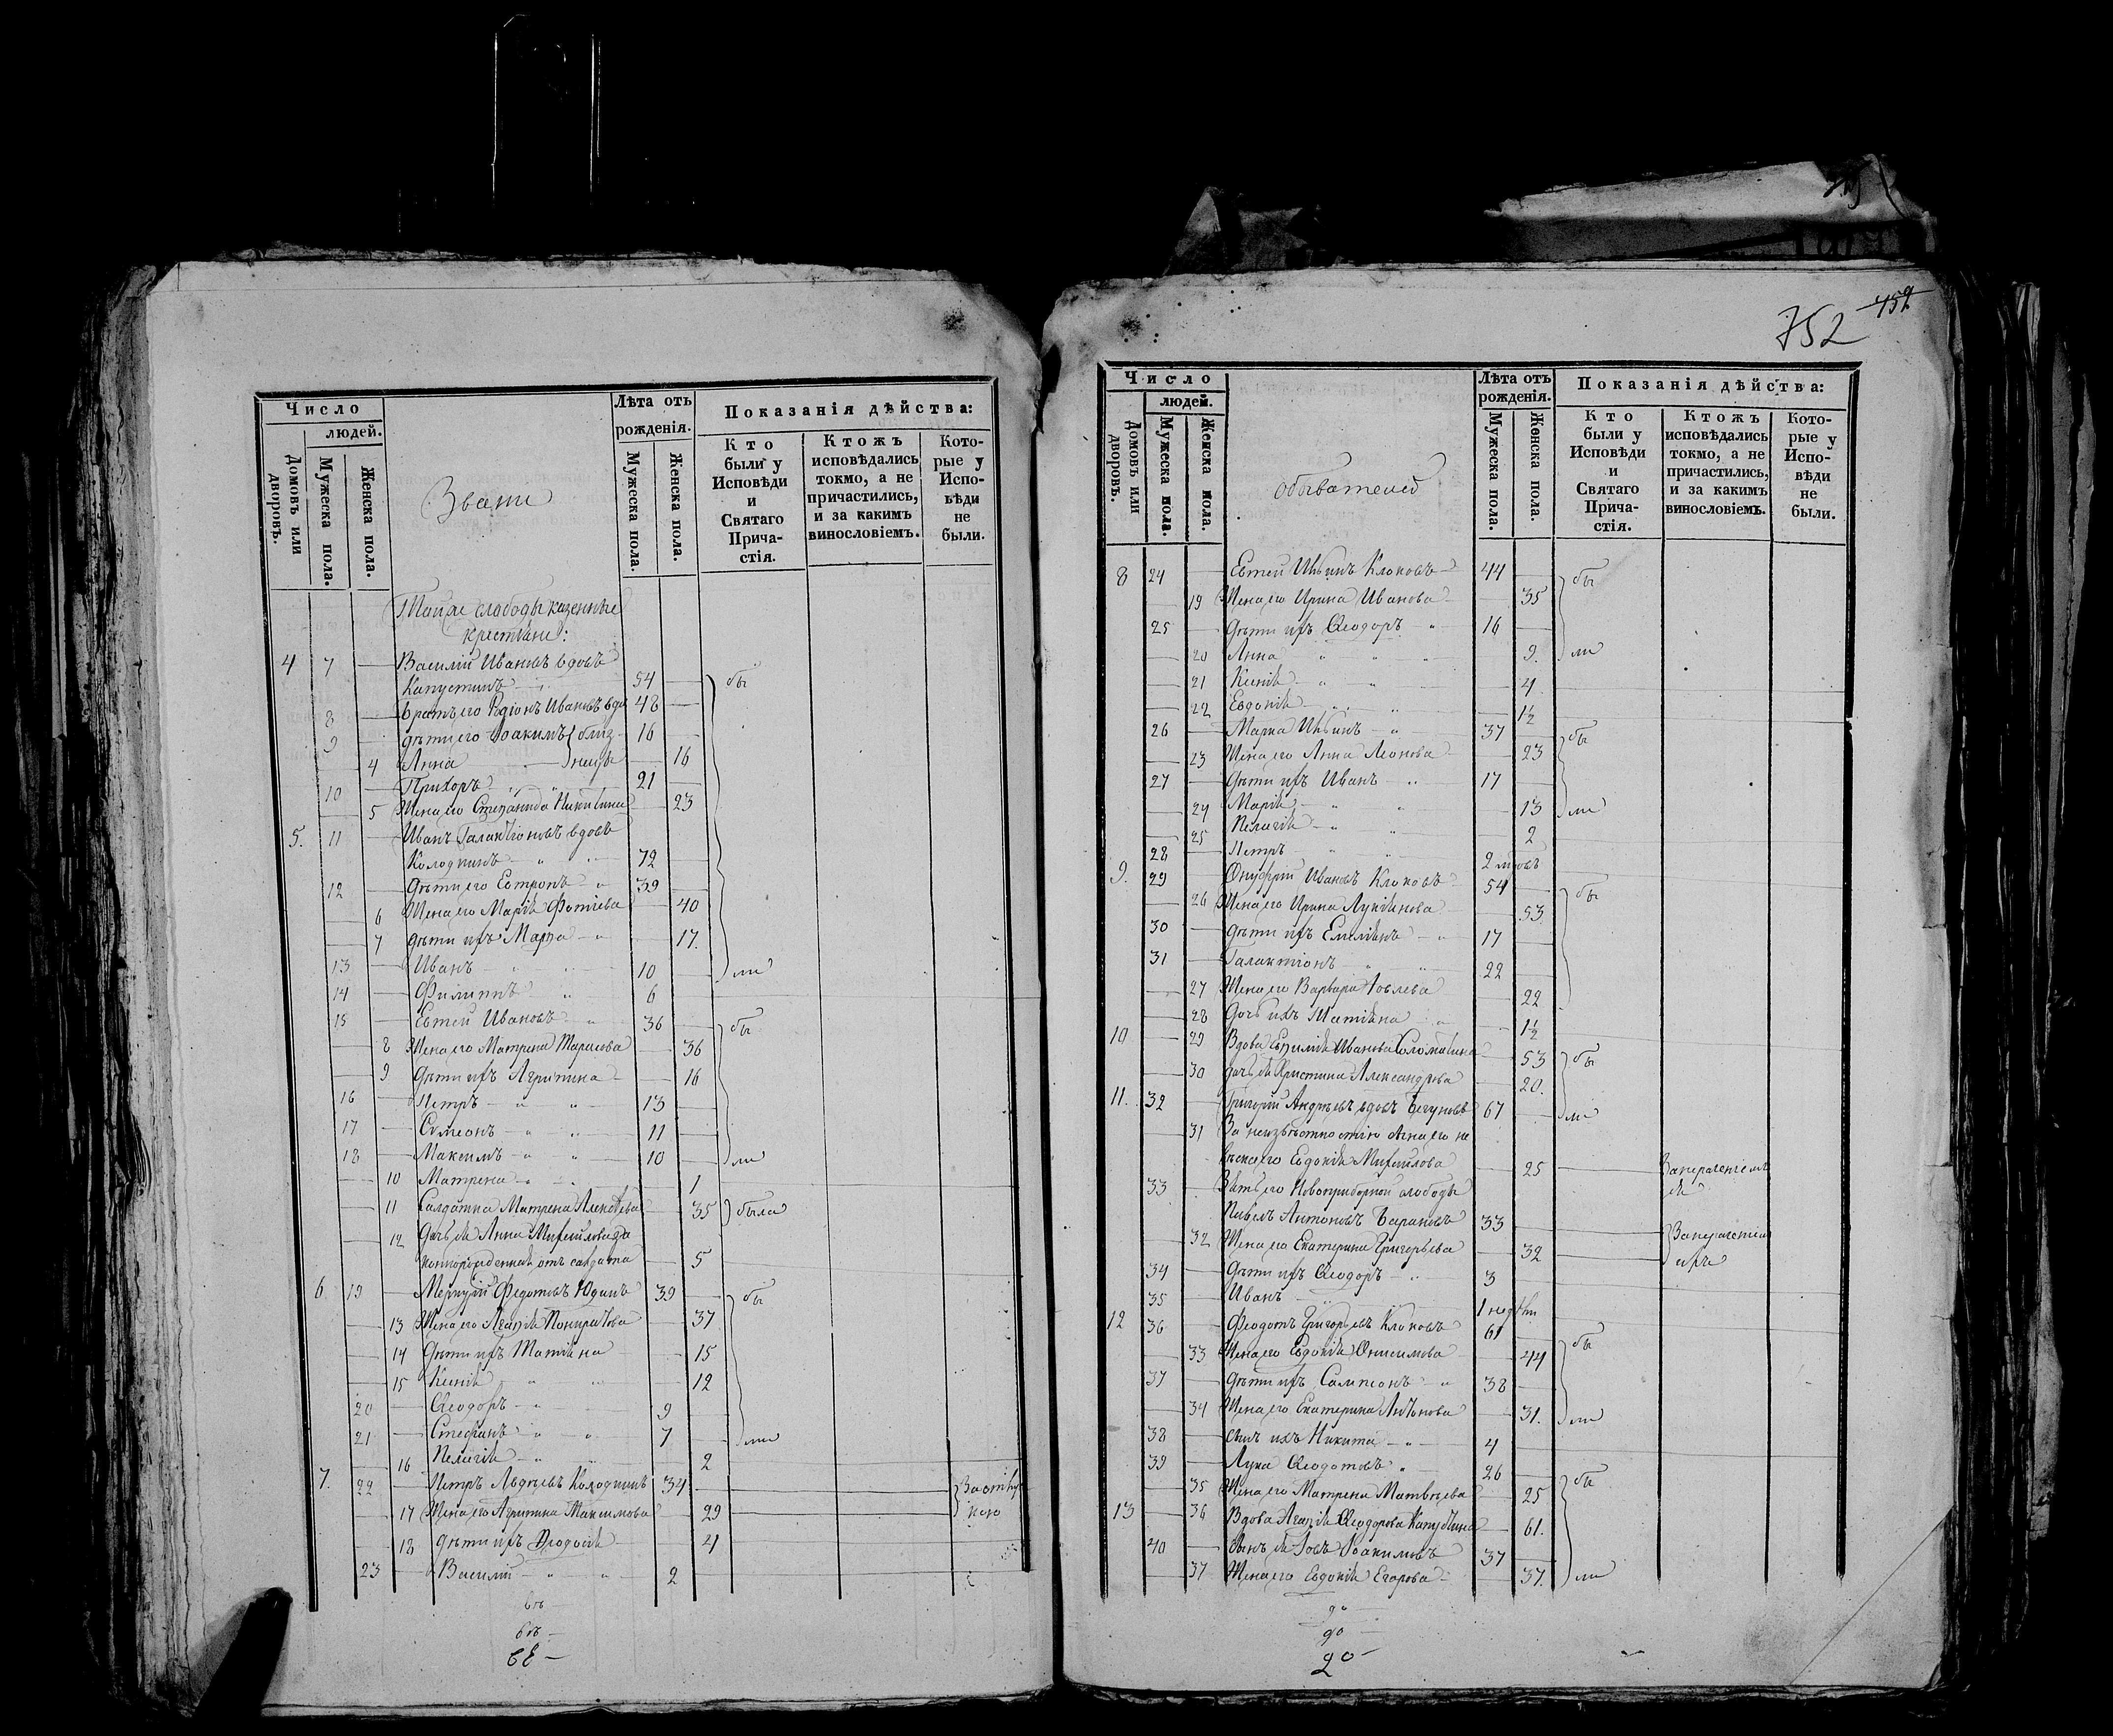 Число
людей.
Домовъ или дворовъ.
Мужеска пола.
Женска пола.
Звани
Лѣта отъ рожденія.
Мужеска пола.
Женска пола.
Показанія дѣйства:
Кто были у Исповѣди и Святаго Прича-стія.
Ктожъ исповѣдались токмо, а не причастились, и за какимъ винословіемъ.
Кото-рые у Испо-вѣди не были.
Тойже слободы казенные
крестьяне:
4 7 Василій Ивановъ вдовъ
Капустинъ 54 бы
8 братъ его Родіонъ Ивановъ вдо 48
9 дѣти его Іоакимъ близ 16
4 Анна нецы 16
10 Прихоръ " " 21
5 Жена его Степанида Никитина 23
5. 11 Иванъ Галактіоновъ вдовъ
Колодкинъ " 72
12 Дѣти его Евтропъ " 39
6 Жена его Марія Фотіева 40
7 дѣти ихъ Марѳа " 17.
13 Иванъ " " 10 ли
14 Филиппъ " 6
15 Евтей Ивановъ " 36 бы
8 Жена его Матрена Тарасова 36
9 Дѣти ихъ Агрипина 16
16 Петръ " " 13
17 Сѵмеонъ " " 11
18 Максимъ " " 10 ли
10 Матрена " " 1
11 Салдатка Матрена Алексѣева 35 была
12 Дочь ея Анна Михайлова
рожденная отъ салдата 5
6 19 Меркурій Федотовъ Юдинъ 39 бы
13 Жена его Агаѳія 37
14 Дѣти ихъ Татіана 15
15 Ксенія " " 12
20 Ѳеодоръ " 9
21 Стефанъ " " 7 ли
16 Пелагія " 2
7. 22 Петръ Авдѣевъ Колодкинъ 34 За отлу
17 Жена его Агрипина Максимова 29 кою
18 Дѣти их Ѳеодосія 4
23 Василій " " 2
68
752 452
Число
людей.
Домовъ или дворовъ.
Мужеска пола.
Женска пола.
обывателей
Лѣта отъ рожденія.
Мужеска пола.
Женска пола.
Показанія дѣйства:
Кто были у Исповѣди и Святаго Прича-стія.
Ктожъ исповѣдались токмо, а не причастились, и за какимъ винословіемъ.
Кото-рые у Испо-вѣди не были.
8 24 Евтей Ильинъ Клоковъ 44 бы
19 Жена его Ирина Иванова 35
25 Дѣти ихъ Ѳеодоръ " 16
20 Анна " " " 9. ли
21 Ксенія " " 4
22 Евдокія " " 1½
26 Марка Ильинъ " 37 бы
23 Жена его Анна Леонова 23
27 Дѣти ихъ Иванъ " 17
24 Марія " " 13 ли
25 Пелагія " " 2
28 Петръ " "
9. 29 Онуфрій Ивановъ Клоковъ 54 бы
26 Жена его Ирина Лукіянова 53
30 дѣти ихъ Емеліянъ " 17
31 Галактіонъ " " 22
27 Жена его Варвара Іовлева 22
28 Дочь ихъ Татіана " 1½
10 29 Вдова Иванова 53 бы
30 дочь ея Христина Александрова 20.
11. 32 Григорій Андреевъ вдовъ Бегуновъ 67 ли
31 За неизвѣстностію его не
Евдокія Михайлова 25
33 Зять его Новоприборной слободы
Павелъ Антоновъ Барановъ 33
32 Жена его Екатерина Григорьева 32
34 Дѣти ихъ Ѳеодоръ " 3
35 Иванъ " 1
12 36 Феодотъ Григорьевъ Клоковъ 61 бы
33 Жена его Евдокія Онисимова 44
37 Дѣти ихъ Сампсонъ " 38
34 Жена его Екатерина 31. ли
38 сынъ ихъ Никита " 4
39 Лука Ѳеодотовъ " 26 бы
35 Жена его Матрена Матвѣева 25
13 36 Вдова Агаѳія Ѳеодорова Капустина 61.
40 сынъ ея Іовъ Іоакимовъ 37
37 Жена его Евдокія Егорова 37. ли
90
20